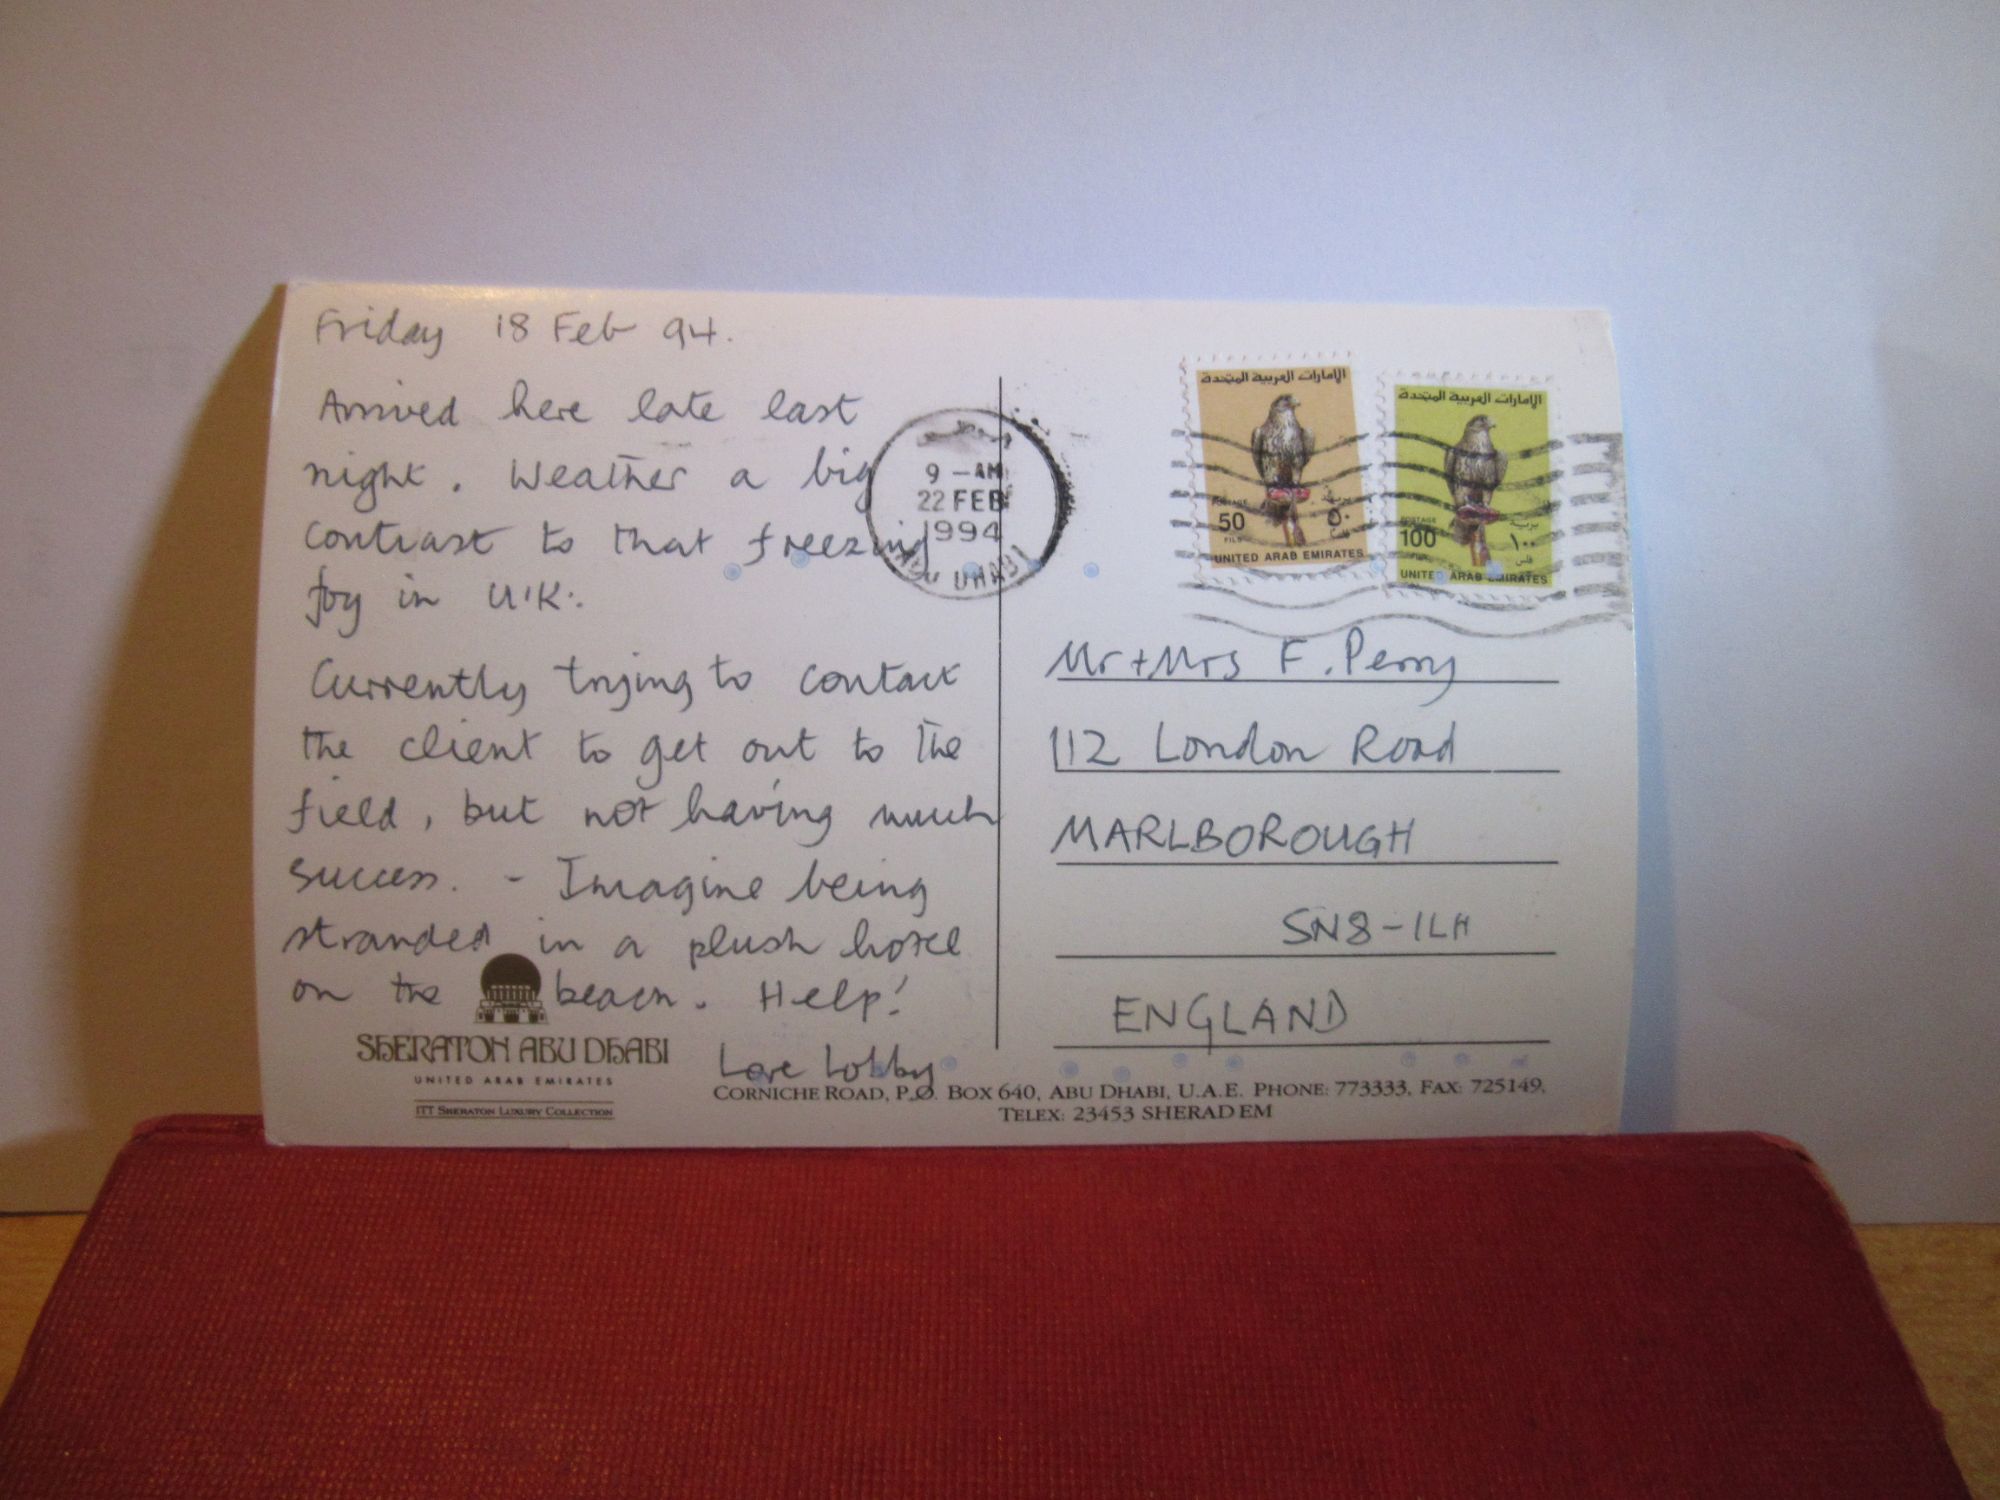 Friday 18 Feb 94.
Arrived here late last
night. Weather a big
contrast to that freezing
fog in U.K.
Currently trying to contact
the client to get out to the
field, but not having much
success. - Imagine being
stranded in a plush hotel
on the beach. Help!
Love Lobby
SHERATON ABU DHABI
UNITED ARAB EMIRATES
ITT SHERATON LUXURY COLLECTION
CORNICHE ROAD, P.O. BOX 640, ABU DHABI, U.A.E. PHONE: 773333, FAX: 725149,
TELEX: 23453 SHERAD EM
9 -AM
22 FEB
1994
ABU DHABI
الإمارات العربية المتحدة
POSTAGE
بريد
50
٥٠
FILS
فلس
UNITED ARAB EMIRATES
الإمارات العربية المتحدة
POSTAGE
بريد
100
١٠٠
فلس
UNITED ARAB EMIRATES
Mr + Mrs F. Perry
112 London Road
MARLBOROUGH
SN8-1LH
ENGLAND